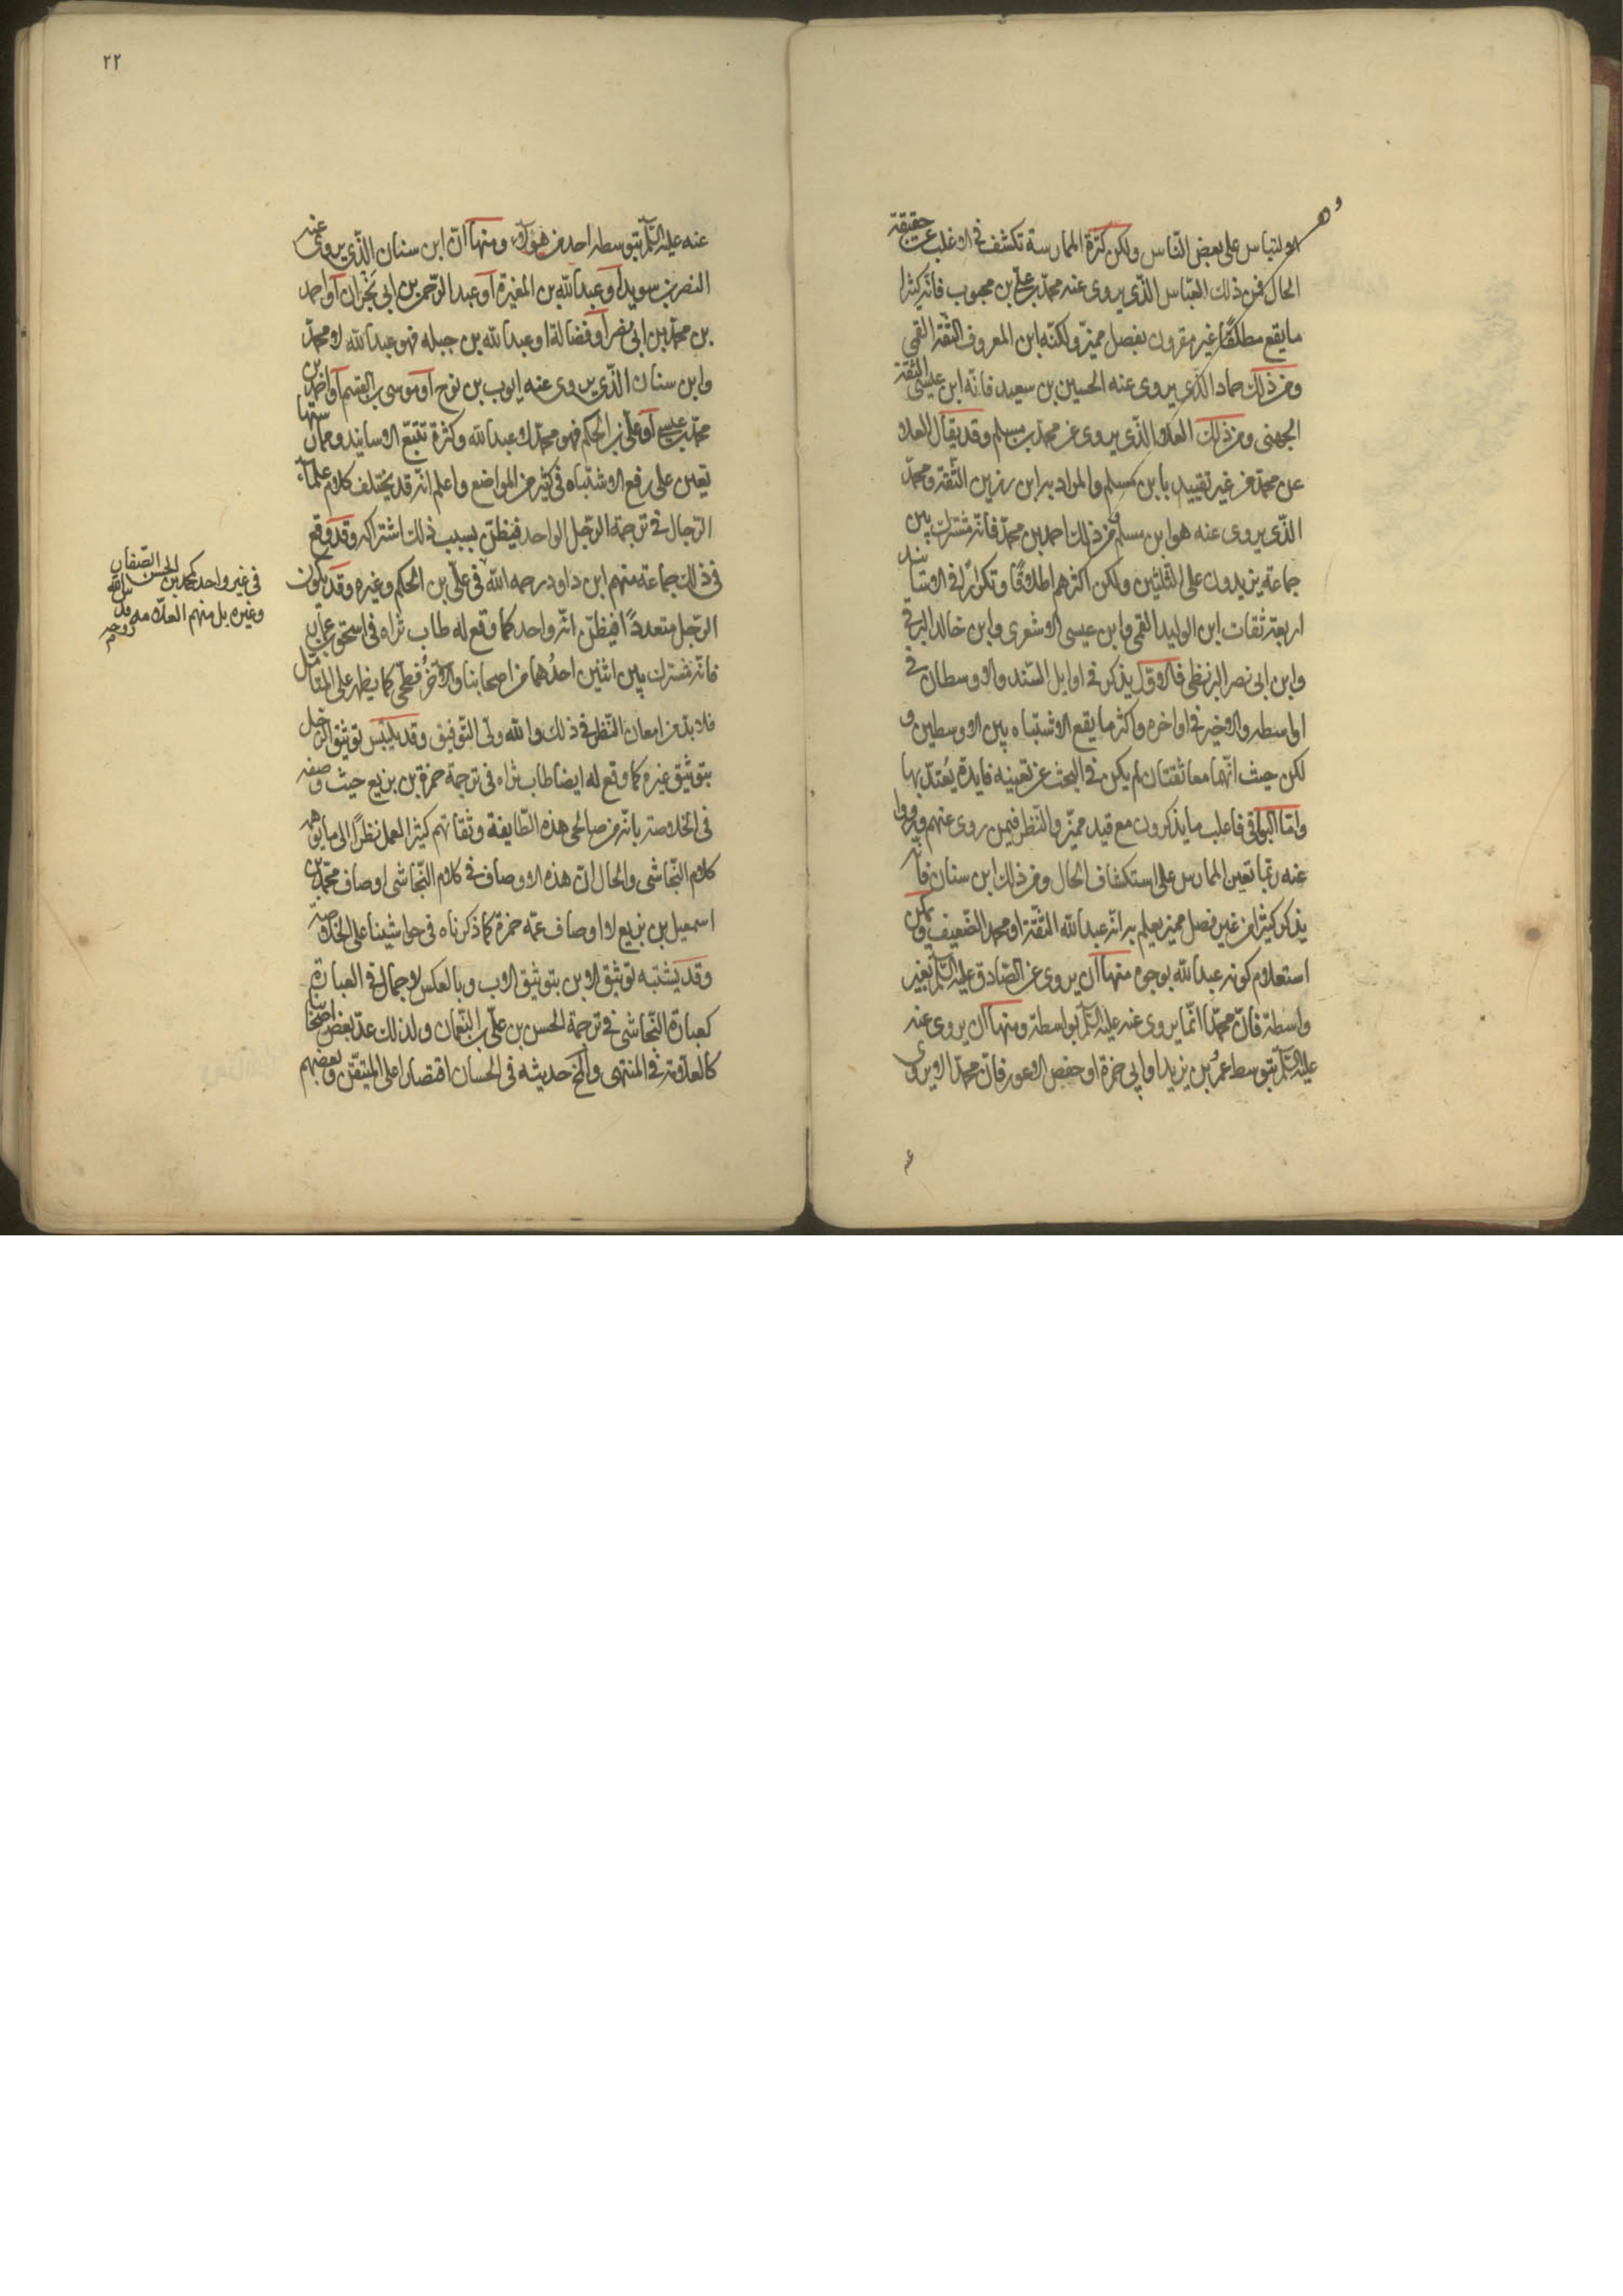 وهـ
الالتباس على بعض الناس ولكن كثرة الممارسة تكشف في الاغلب عن حقيقة
الحال فمن ذلك العبّاس الذّي يروى عنه محمّد بن علي بن محبوب فانّه كثيرا
ما يقع مطلقًا غير مقرون بفصل مميّز ولكنّه ابن المعروف الثّقة القمي
ومن ذلك حماد الذّي يروى عنه الحسين بن سعيد فانّه ابن عيسى الثقة
الجهنى ومن ذلك العلا الذّي يروى عن محمد بن مسلم وقد يقال العلا
عن محمد من غير تقييد بابن مسلم والمراد به ابن رزين الثّقة ومحمّد
الذّي يروى عنه هو ابن مسلم ومن ذلك احمد بن محمّد فانّه مشترك بين
جماعة يزيدون على الثلثين ولكن اكثرهم اطلاقًا وتكرارًا في الاسانيد
اربعة ثقات ابن الوليد القمى وابن عيسى الاشعرى وابن خالد البرقي
وابن ابى نصر البزنطى فالاوّل يذكر في اوايل السّند والاوسطان في
اواسطه والاخير في اواخره واكثر ما يقع الاشتباه بين الاوسطين و
لكن حيث انّهما معا ثقتان لم يكن في البحث عن تعيينه فايدة يُعتدّ بها
وامّا البواقى فاغلب ما يذكرون مع قيد مميّز والنّظر فيمن روى عنهم ورووا
عنه ربّما تعين الممارس على استكشاف الحال ومن ذلك ابن سنان فانّه
يذكر كثيرًا من غير فصل مميز يعلم به انّه عبد الله الثّقة او محمد الضّعيف ويمكن
استعلام كونه عبد الله بوجوه منها ان يروى عن الصّادق عليه السّلم بغير
واسطة فانّ محمّدا انّما يروى عنه عليه السّلم بواسطة ومنها ان يروى عنه
عليه السّلم بتوسط عمر بن يزيد او ابي حمزة او حفص الاعور فانّ محمّدا لا يروى
عنه
٢٢
عنه عليه السّلم بتوسط احد من هؤلاء ومنها انّ ابن سنان الذّي يروى عنه
النضر بن سويد او عبد الله بن المغيرة او عبد الرّحمن بن ابى نَجْران او احمد
بن محمّد بن ابى نصر او فضالة او عبد الله بن جبله فهو عبد الله لا محمّد
وابن سنان الذّي يروى عنه ايوب بن نوح او موسى بن القسم او احمد بن
محمّد بن عيسى او علىّ بن الحكم فهو محمّد لا عبد الله وكثرة تتبّع الاسانيد وممارستها
تعين على رفع الاشتباه في كثير من المواضع واعلم انّه قد يختلف كلام علماء
الرّجال في ترجمة الرّجل الواحد فيظنّ بسبب ذلك اشتراكه وقد وقع
في ذلك جماعة منهم ابن داود رحمه الله في علىّ بن الحكم وغيره وقد يكون
الرّجل متعددًا فيظنّ انّه واحد كما وقع له طاب ثراه في اسحق بن عمّار
فانّه مشترك بين اثنين احدُهما من اصحابنا والاٰخرُ فطحي كما يظهر على المتأمل
فلا بدّ من امعان النّظر في ذلك والله ولىّ التّوفيق وقد يلتبس توثيق الرّجل
بتوثيق غيره كما وقع له ايضا طاب ثراه في ترجمة حمزة بن بزيع حيث وصفه
في الخلاصة بانّه من صالحى هذه الطّايفة وثقاتهم كثير العمل نظرًا الى ما يوهمه
كلام النّجاشى والحال انّ هذه الاوصاف في كلام النّجاشى اوصاف محمّد بن
اسمعيل بن بزيع لا اوصاف عمّه حمزة كما ذكرناه في حواشينا على الخلاصة
وقد يشتبه توثيق الابن بتوثيق الاب وبالعكس لاجمال في العبارة
كعبارة النّجاشى في ترجمة الحسن بن علىّ بن النّعمان ولذلك عدّ بعض اصحابنا
كالعلامة في المنتهى والمخ حديثه في الحسان اقتصارا على المتيقّن وبعضهم
في غير واحد كمحمد بن الحسن الصّفار
وغيره بل منهم العلّامه قدس الله روحه